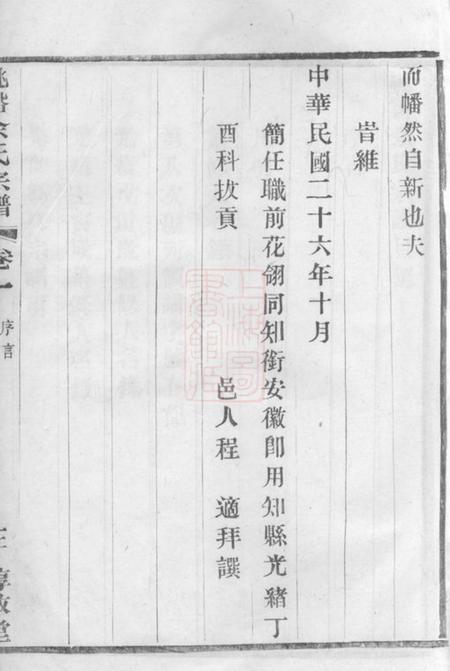 而幡然自新也夫
旹維
中華民國二十六年十月
簡任職前花翎同知銜安徽卽用知縣光緒丁
酉科拔貢　邑人程　適拜譔
氏宗譜
卷一
序言